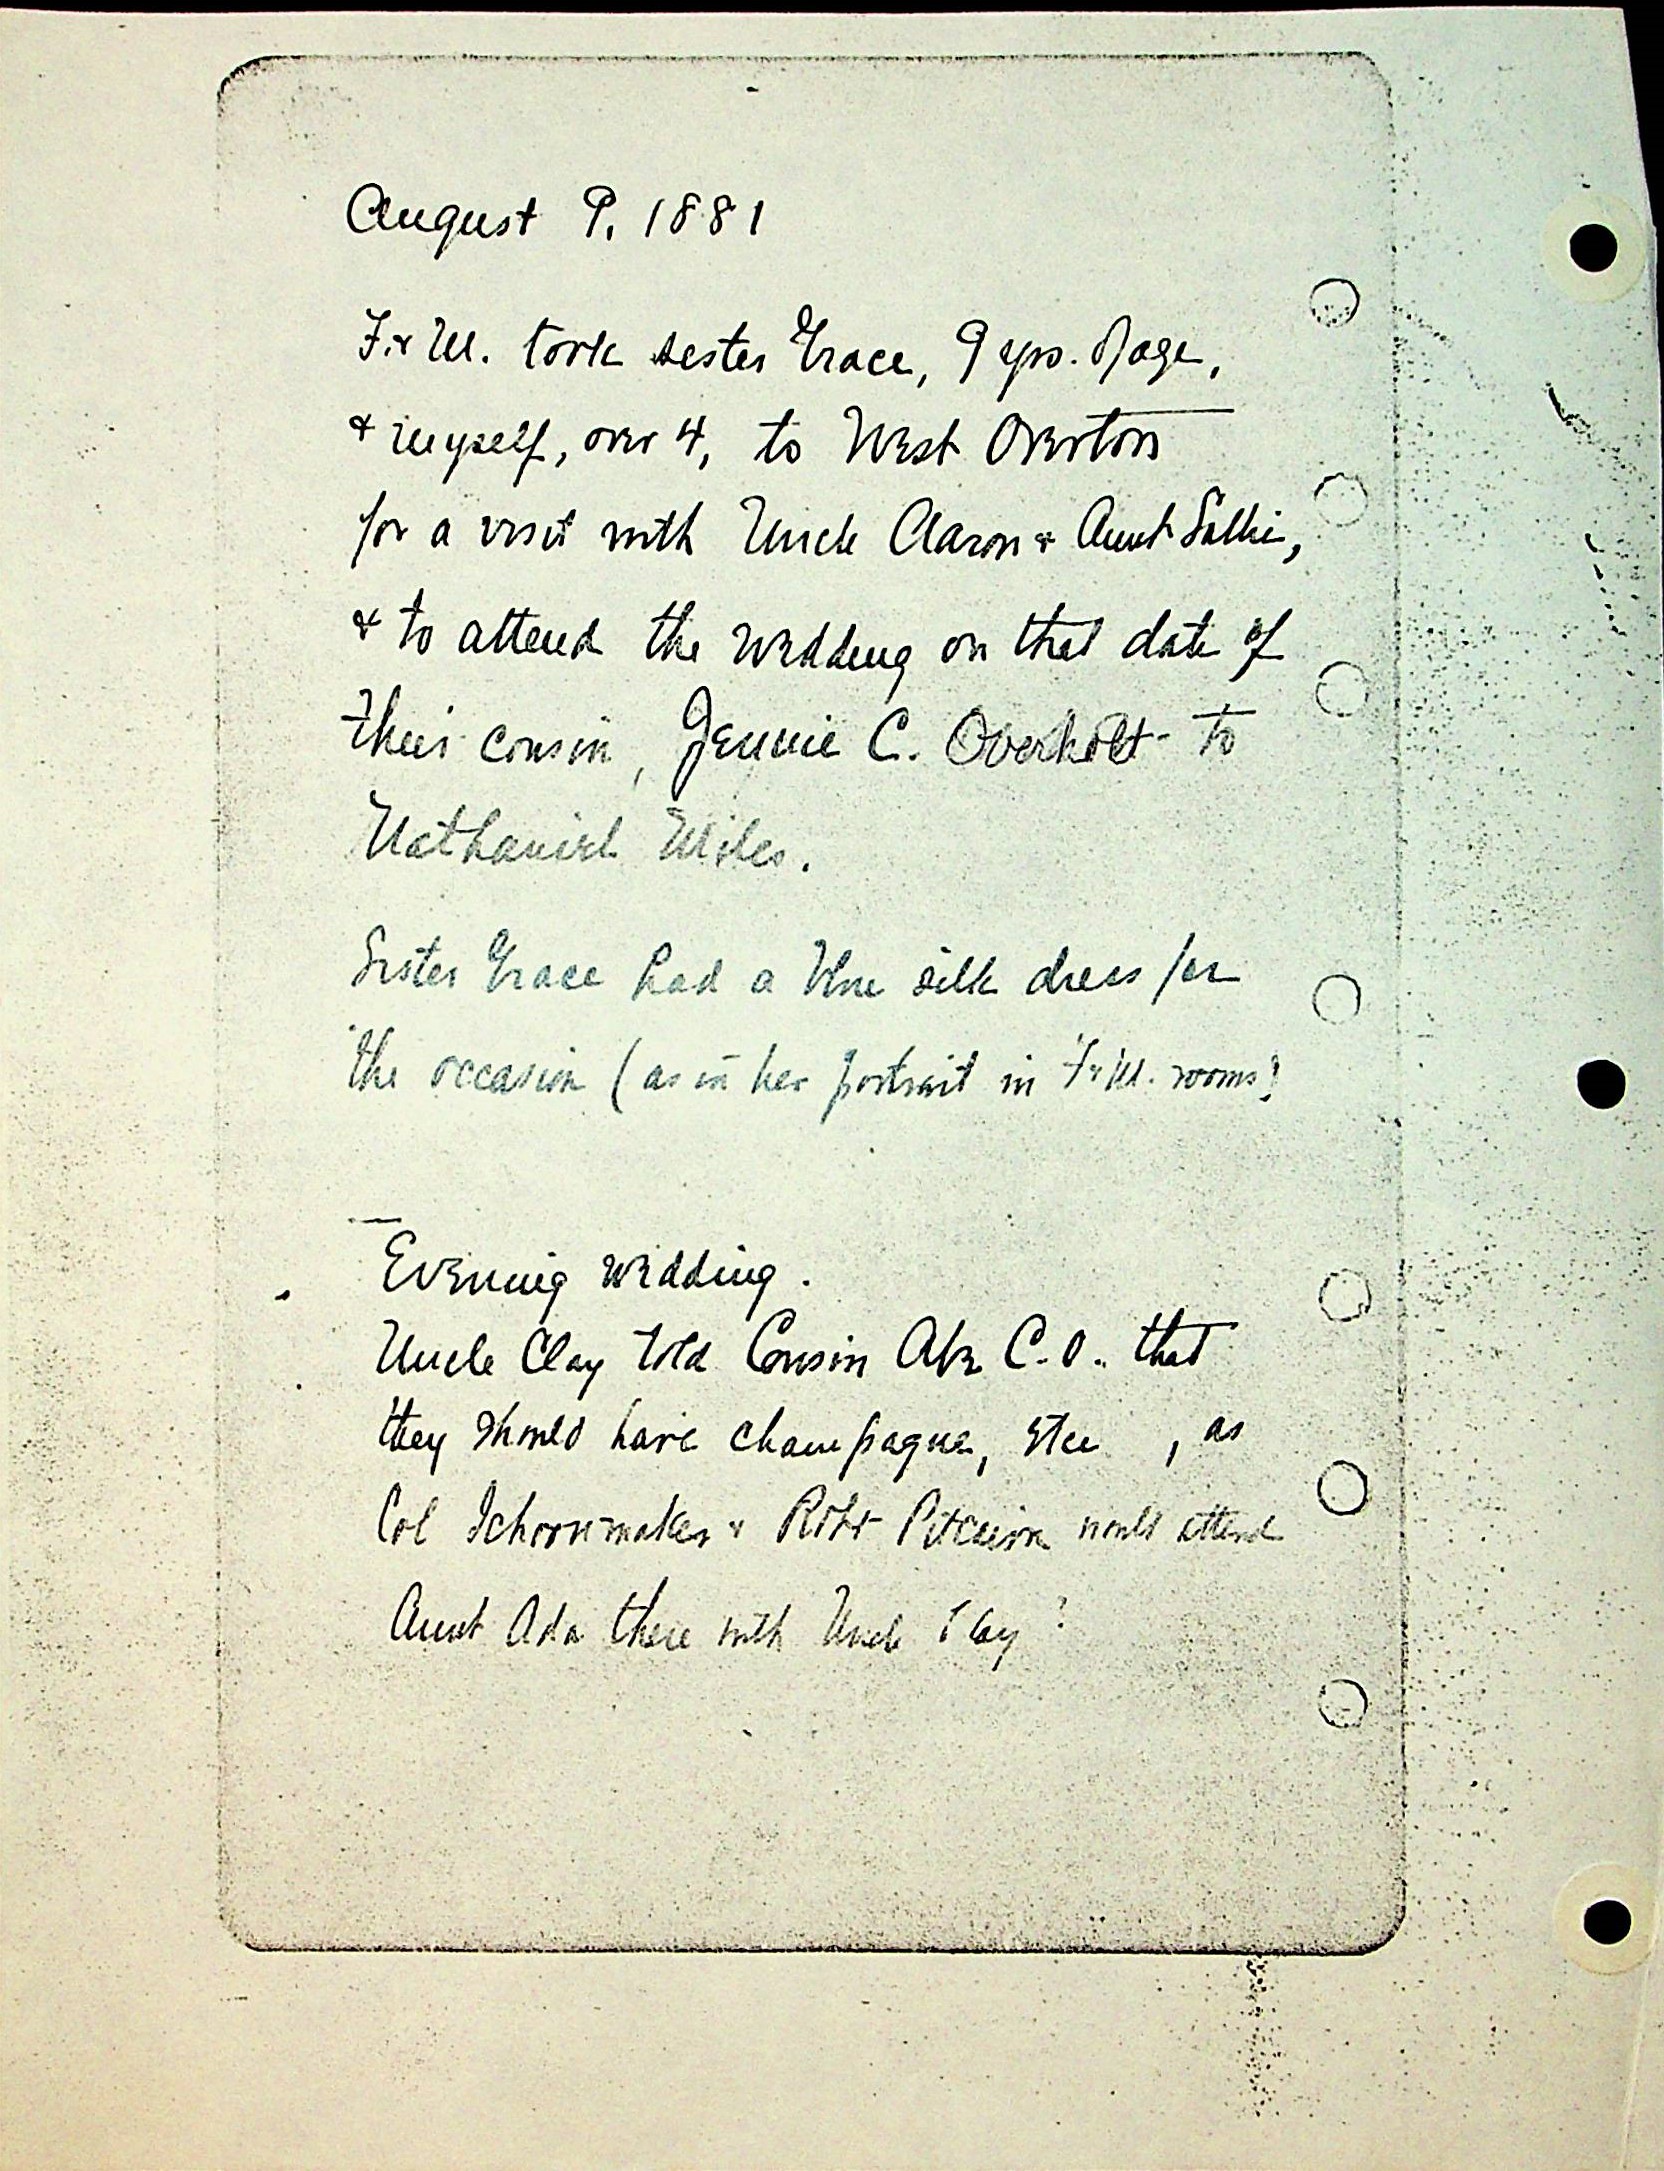 August 9, 1881
F. & M. took sister Grace, 9 yrs. of age,
& myself, over 4, to West Overton
for a visit with Uncle Aaron & Aunt Sallie,
& to attend the wedding on that date of
their cousin, Jennie C. Overholt to
Nathaniel Miles.
Sister Grace had a blue silk dress for
the occasion (as in her portrait in F & M. rooms)
Evening wedding.
Uncle Clay told Cousin Abe C. O. that
they should have champagne, etc , as
Col Schoonmaker & Robt Pitcairn would attend
Aunt Ada there with Uncle Clay?